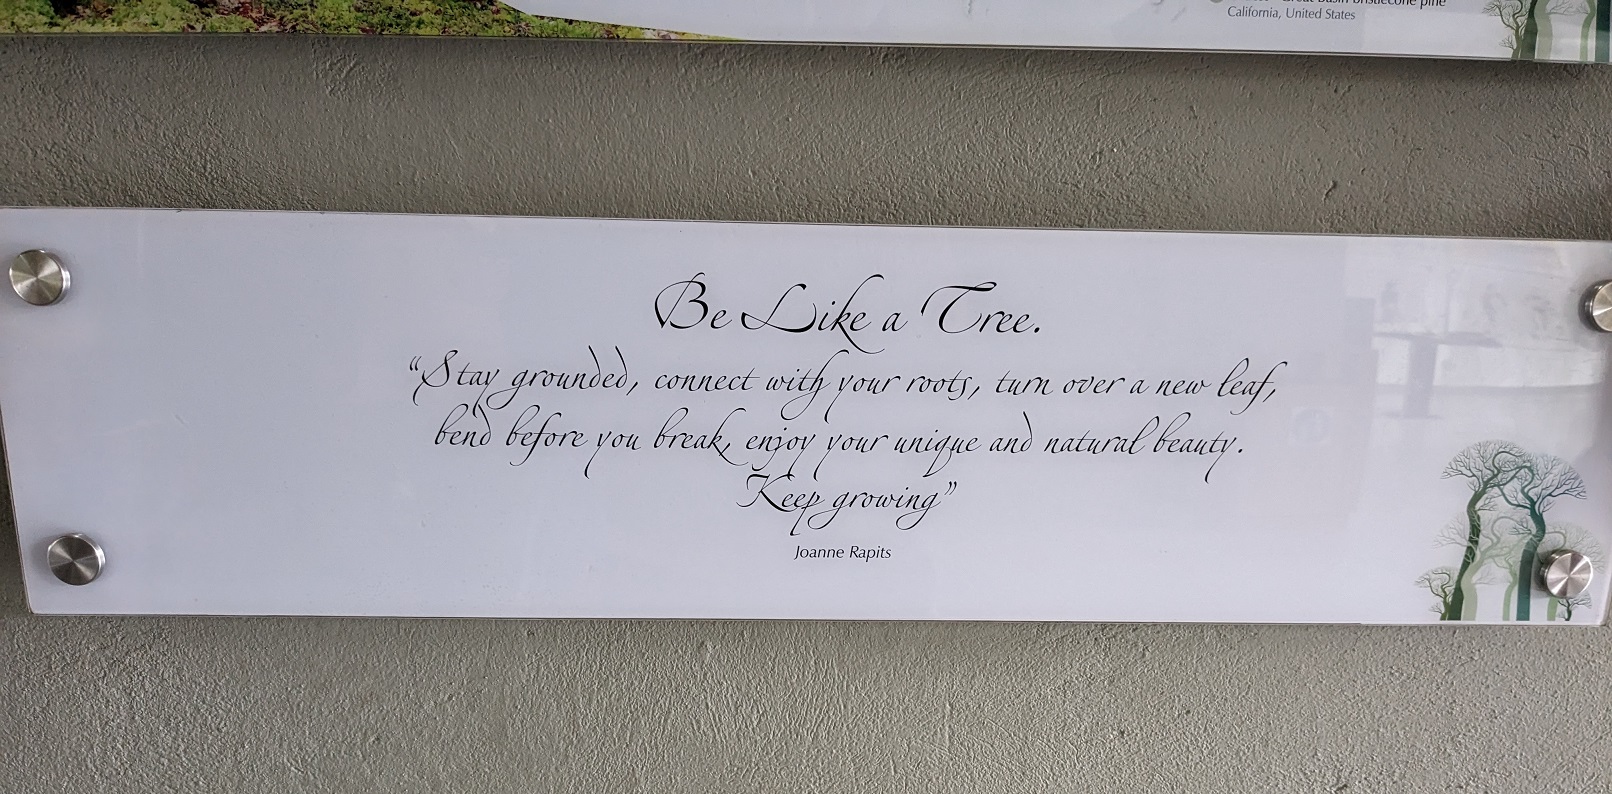 Great Basin bristlecone pine
California, United States
Be Like a Tree.
“Stay grounded, connect with your roots, turn over a new leaf,
bend before you break, enjoy your unique and natural beauty.
Keep growing”
Joanne Rapits